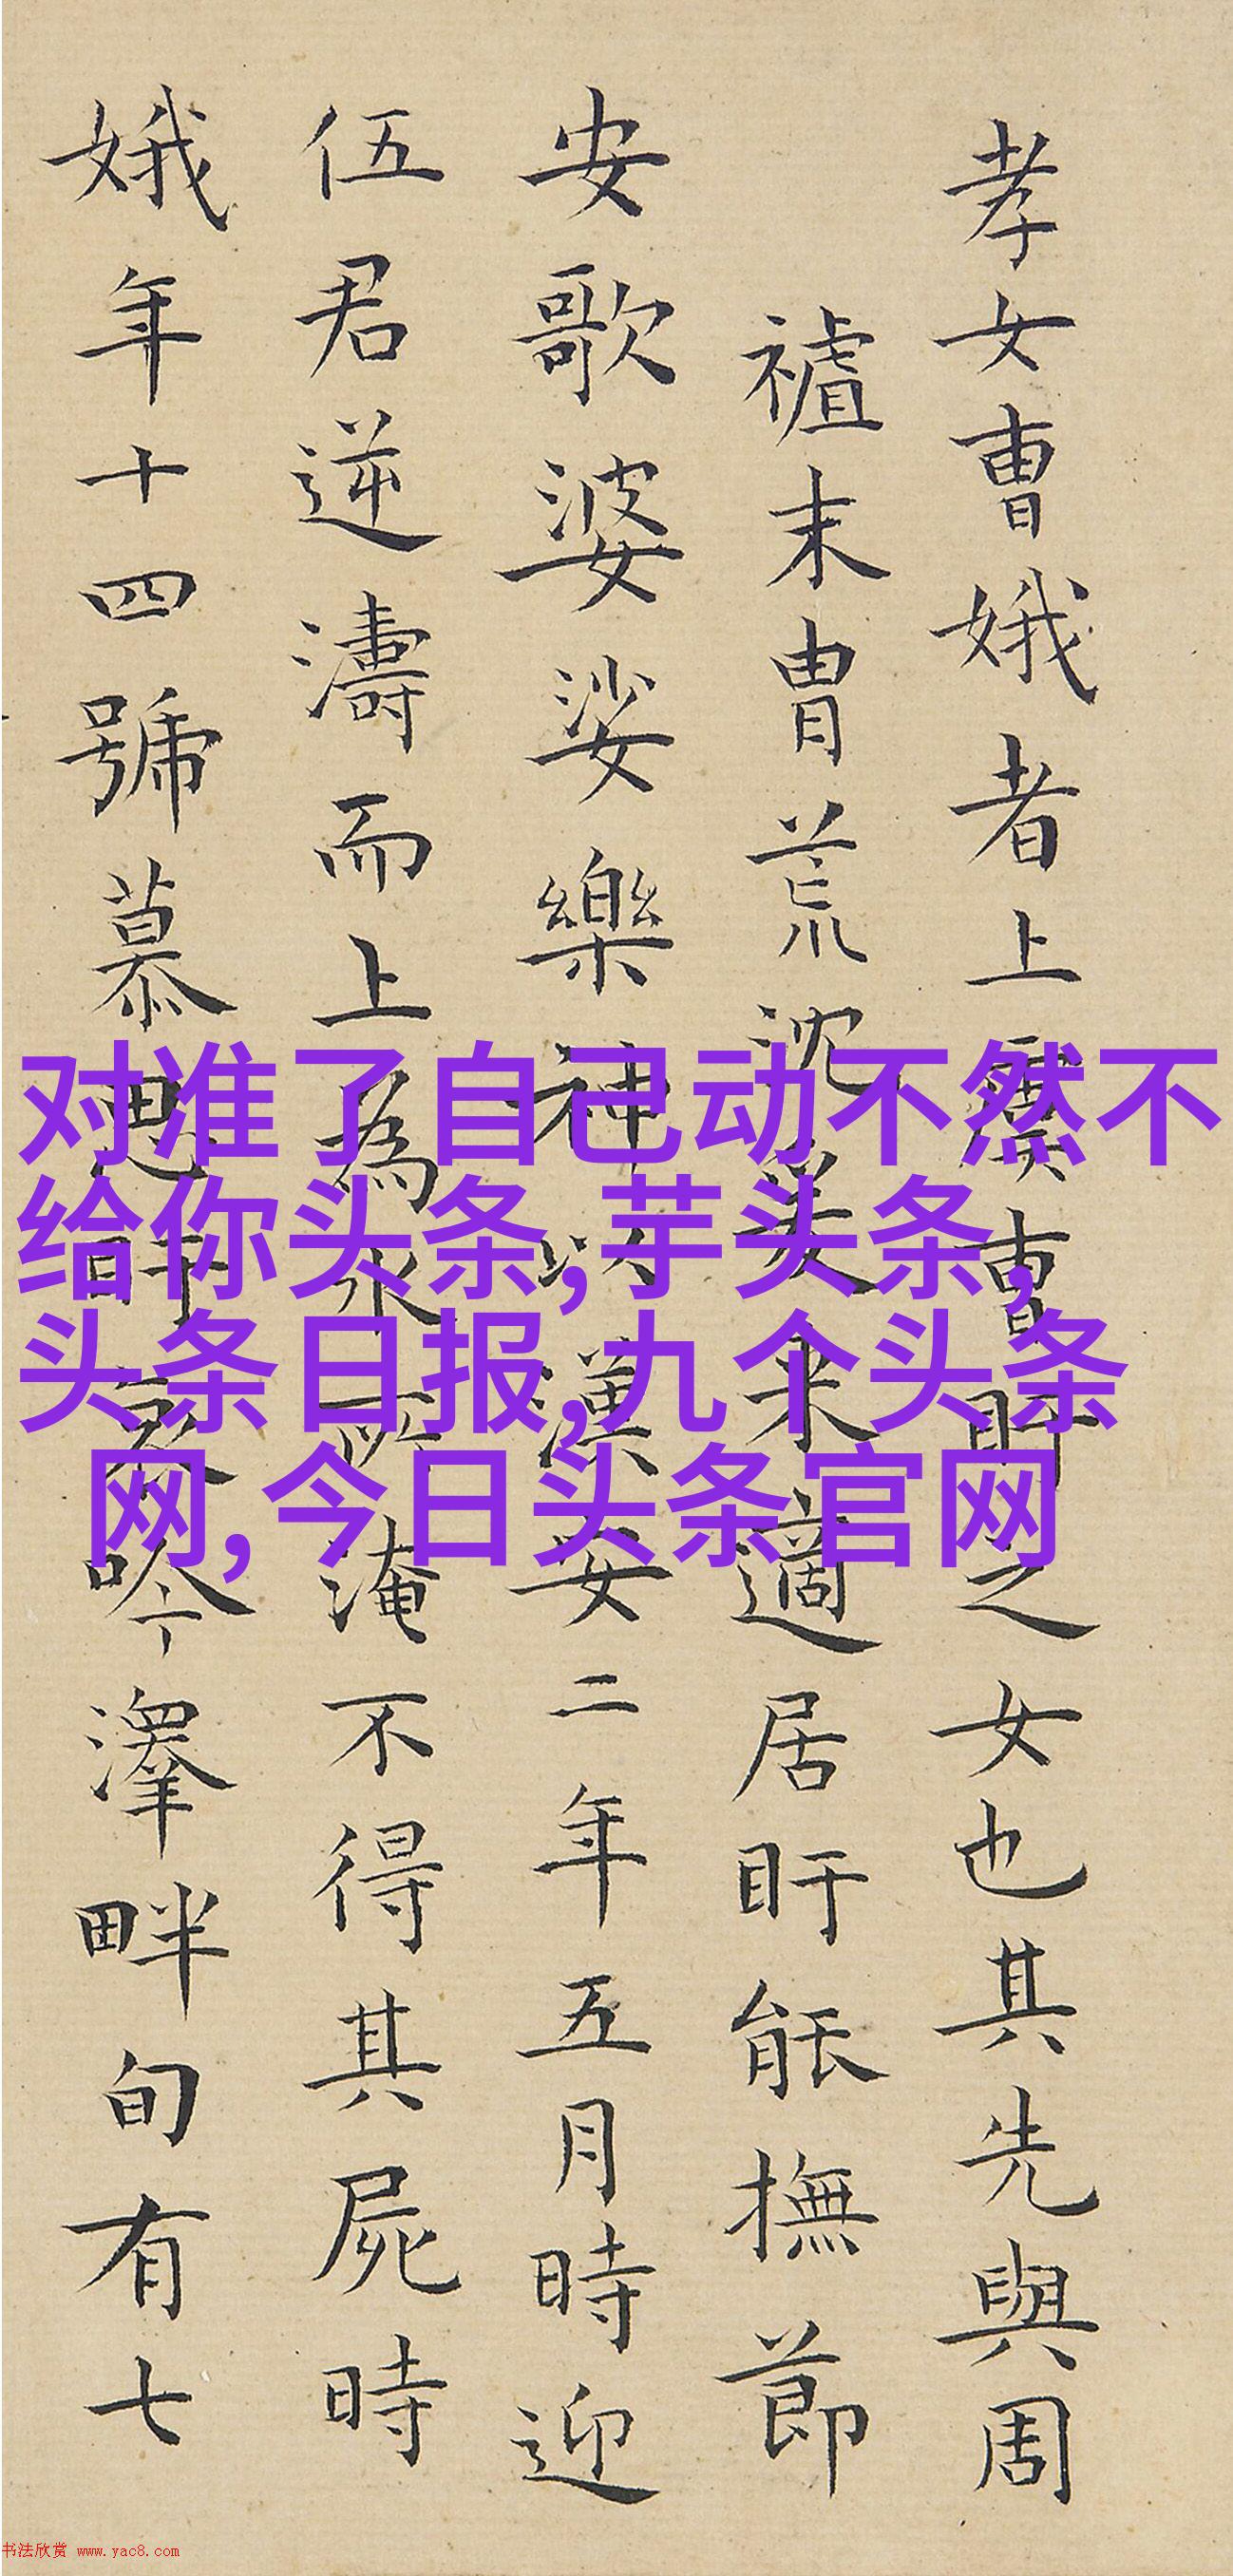 孝女曹娥者上虞曹盱之女也其先與周
末胄荒沈爰来適居盱能撫節
安歌婆娑樂神以漢安二年五月時迎
伍君逆濤而上為水所淹不得其屍時
娥年十四號慕思盱哀吟澤畔旬有七
对准了自己动不然不
给你头条,芋头条,
头条日报,九个头条
网,今日头条官网
书法欣赏 www.yac8.com